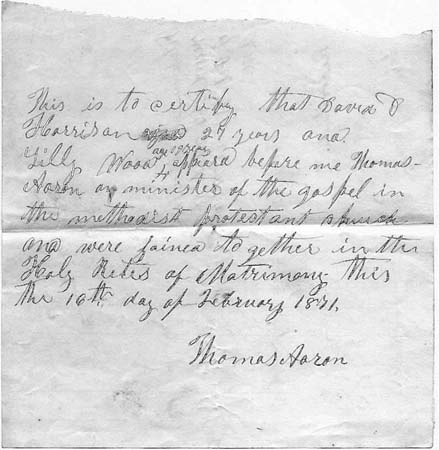 This is to certify that David D
Horrison aged 27 years and
age 19 year
Lilly Wood appeard before me Thomas
Aaron an minister of the gospel in
the methodist protestant church
and were joined together in the
Holy Rites of Matrimony this
the 16th day of February 1871.
Thomas Aaron